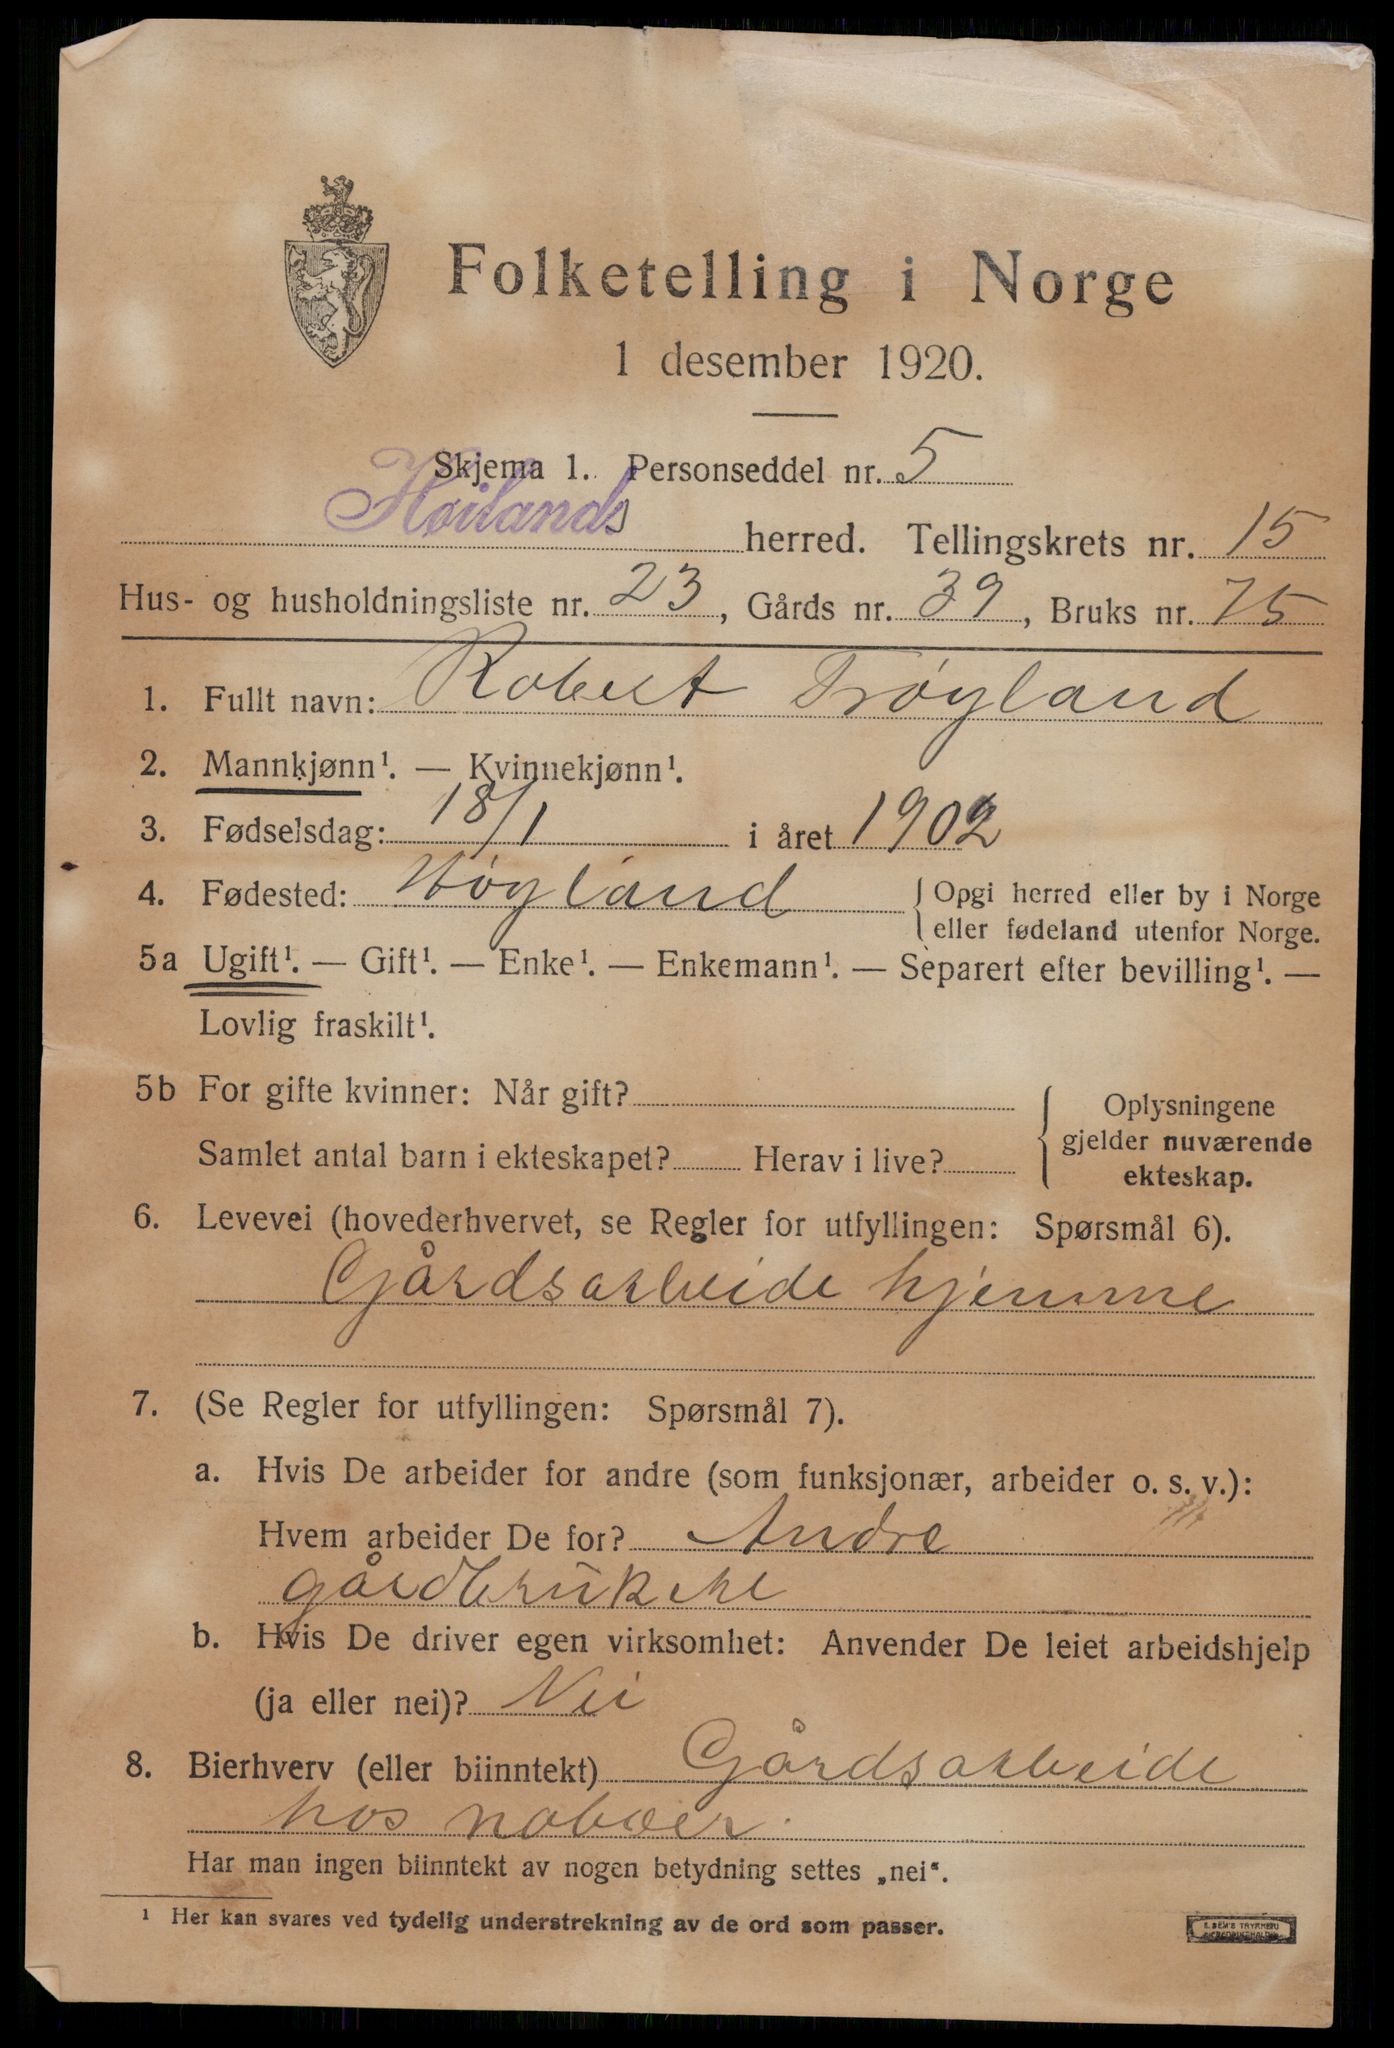 Folketelling i Norge
1 desember 1920.
Skjema 1. Personseddel nr. 5
Høilands herred. Tellingskrets nr. 15
Hus- og husholdningsliste nr. 23, Gårds nr. 39, Bruks nr. 75
1. Fullt navn: Robert Frøyland
2. Mannkjønn¹. — Kvinnekjønn¹.
3. Fødselsdag: 18/1 i året 1902
4. Fødested: Høyland { Opgi herred eller by i Norge
eller fødeland utenfor Norge.
5a Ugift¹. — Gift¹. — Enke¹. — Enkemann¹. — Separert efter bevilling¹. —
Lovlig fraskilt¹.
5b For gifte kvinner: Når gift?
Samlet antal barn i ekteskapet? Herav i live?
{ Oplysningene
gjelder nuværende
ekteskap.
6. Levevei (hovederhvervet, se Regler for utfyllingen: Spørsmål 6).
Gårdsarbeide hjemme
7. (Se Regler for utfyllingen: Spørsmål 7).
a. Hvis De arbeider for andre (som funksjonær, arbeider o. s. v.):
Hvem arbeider De for? Andre
gårdbrukere
b. Hvis De driver egen virksomhet: Anvender De leiet arbeidshjelp
(ja eller nei)? Nei
8. Bierhverv (eller biinntekt) Gårdsarbeide
hos naboer.
Har man ingen biinntekt av nogen betydning settes „nei“.
¹ Her kan svares ved tydelig understrekning av de ord som passer.